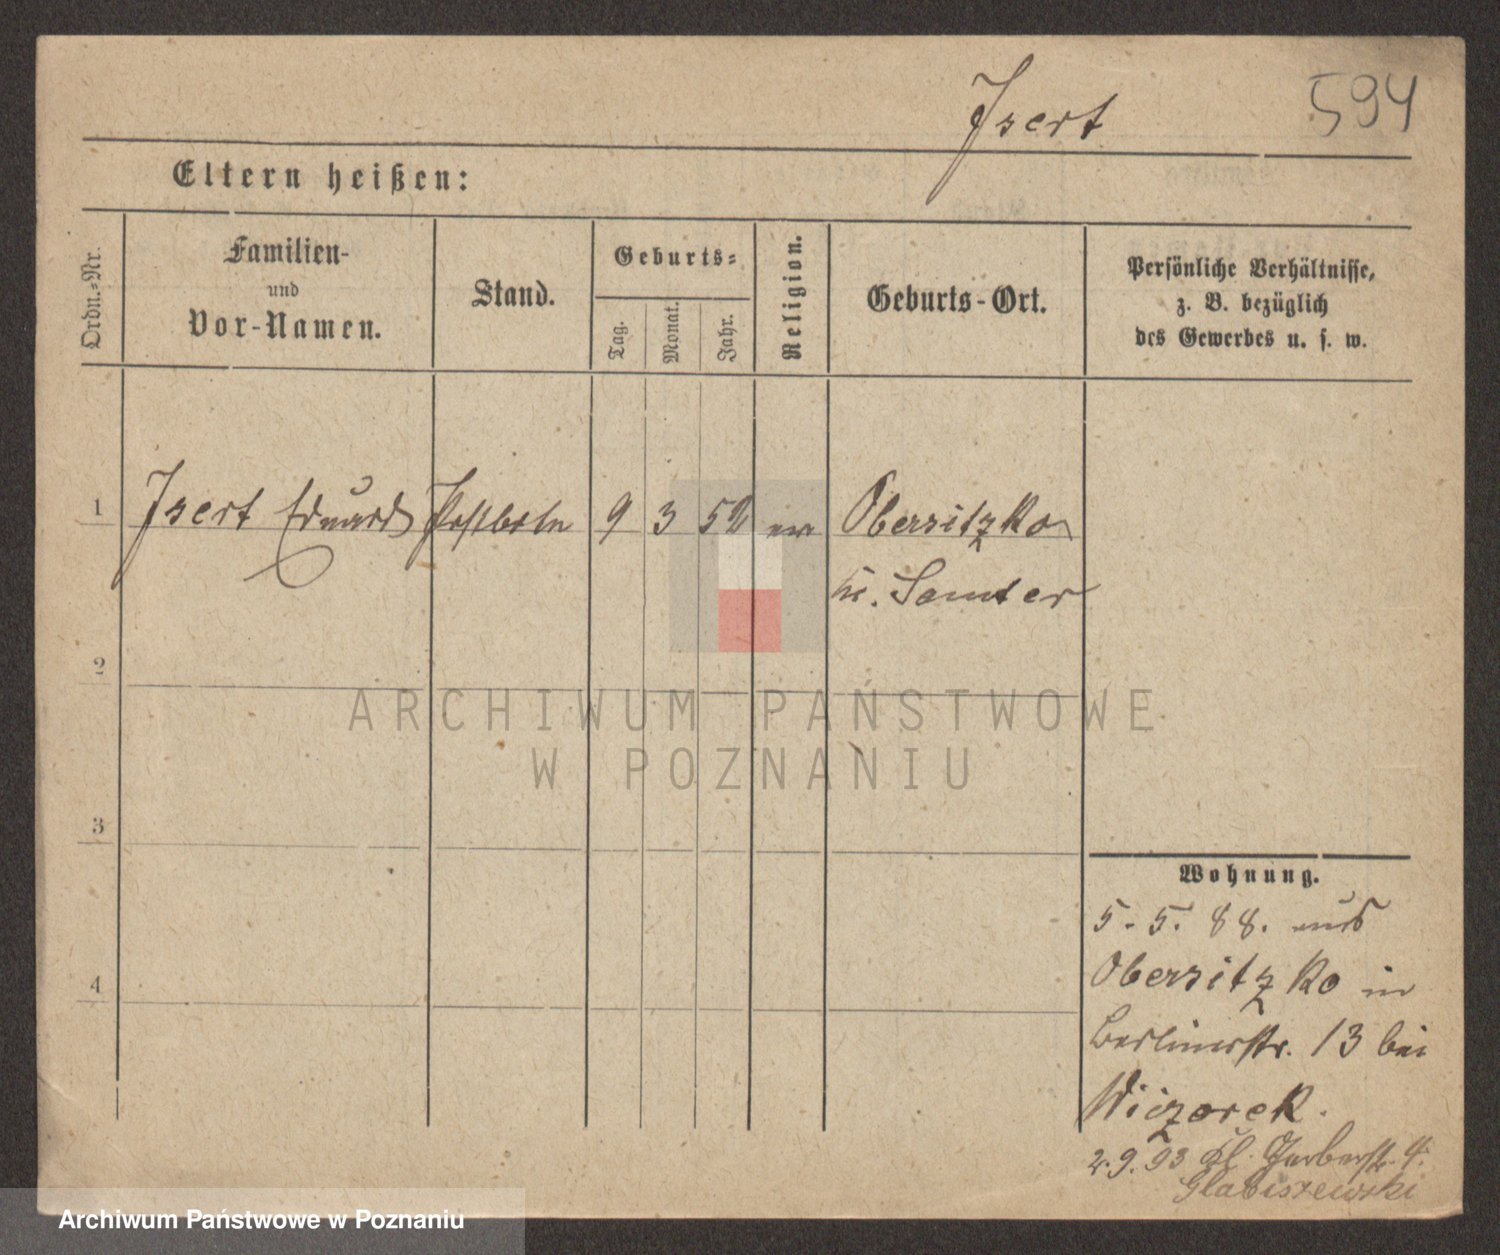 Isert
594
Eltern heißen:
Ordn.-Nr.
Familien-
und
Vor-Namen.
Stand.
Geburts-
Tag.
Monat.
Jahr.
Religion.
Geburts-Ort.
Persönliche Verhältnisse,
z. B. bezüglich
des Gewerbes u. s. w.
1 Isert Eduard Postbote 9 3 52 ev Obersitzko
Kr. Samter
2
3
4
Wohnung.
5.5.88. aus
Obersitzko in
Berlinerstr. 13 bei
Wiczorek.
2.9.93 Kl. Gerberstr. 4.
Glabiszewski
ARCHIWUM PAŃSTWOWE
W POZNANIU
Archiwum Państwowe w Poznaniu